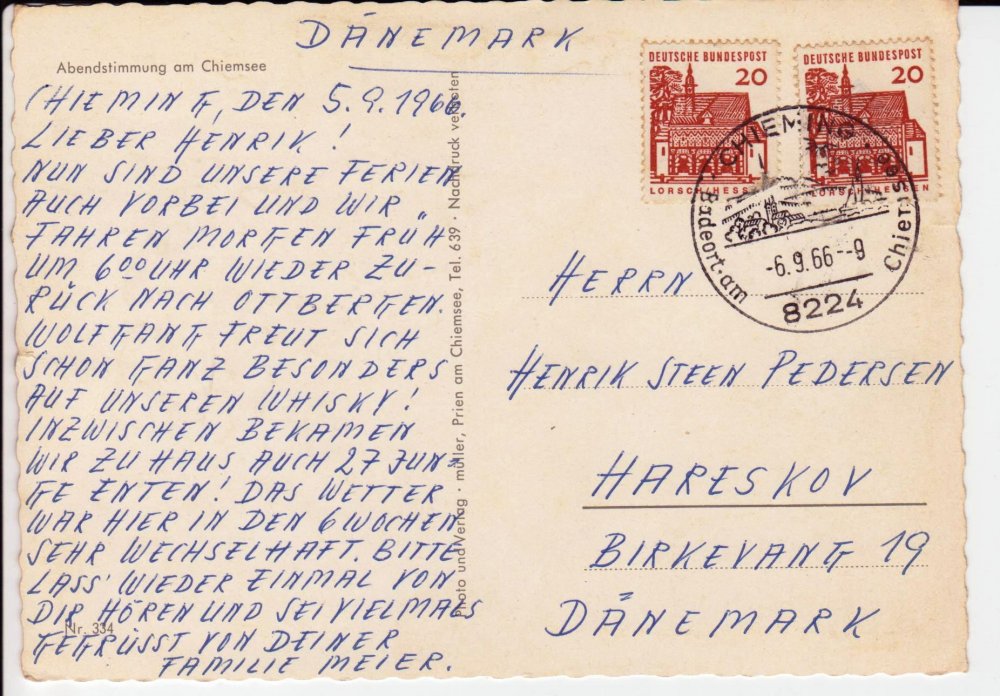 DÄNEMARK
Abendstimmung am Chiemsee
CHIEMING, DEN 5.9.1966.
LIEBER HENRIK!
NUN SIND UNSERE FERIEN
AUCH VORBEI UND WIR
FAHREN MORGEN FRÜH
UM 6 00 UHR WIEDER ZU-
RÜCK NACH OTTBERGEN.
WOLFGANG FREUT SICH
SCHON GANZ BESONDERS
AUF UNSEREN WHISKY!
INZWISCHEN BEKAMEN
WIR ZU HAUS AUCH 27 JUN-
GE ENTEN! DAS WETTER
WAR HIER IN DEN 6 WOCHEN
SEHR WECHSELHAFT. BITTE
LASS' WIEDER EINMAL VON
DIR HÖREN UND SEI VIELMALS
GEGRÜSST VON DEINER
FAMILIE MEIER.
Nr. 334
Photo und Verlag · müller, Prien am Chiemsee, Tel. 639 · Nachdruck verboten
DEUTSCHE BUNDESPOST
20
LORSCH/HESSEN
DEUTSCHE BUNDESPOST
20
LORSCH/HESSEN
CHIEMING
Badeort am Chiemsee
-6.9.66--9
8224
HERRN
HENRIK STEEN PEDERSEN
HARESKOV
BIRKEVANG 19
DÄNEMARK